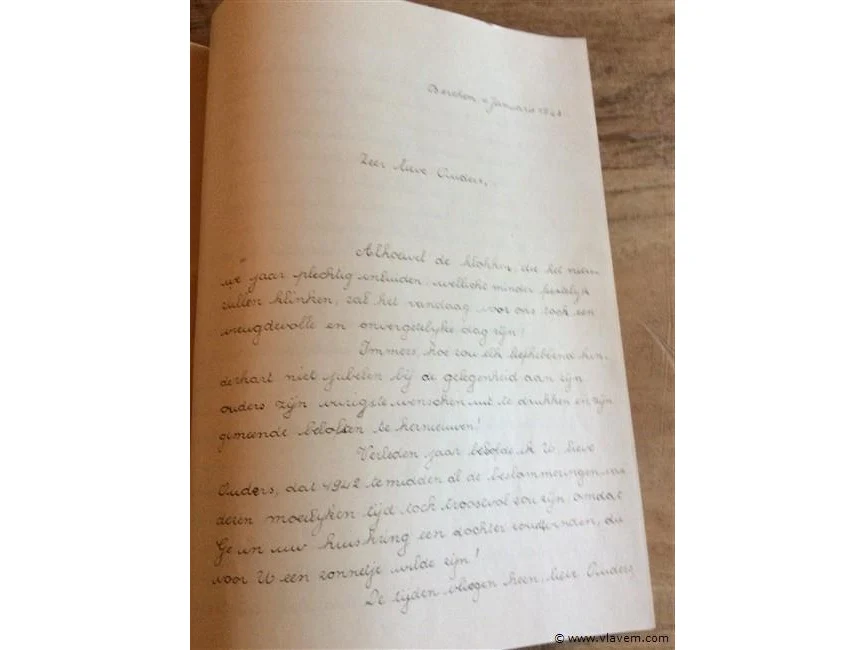 Berchem 1 Januari 1943
Zeer lieve Ouders,
Alhoewel de klokken, die het nieu-
we jaar plechtig inluiden, wellicht minder feestelijk
zullen klinken, zal het vandaag voor ons toch een
vreugdevolle en onvergetelijke dag zijn!
Immers, hoe zou elk liefhebbend kin-
derhart niet jubelen bij de gelegenheid aan zijn
ouders zijn vurigste wenschen uit te drukken en zijn
gemeende beloften te hernieuwen!
Verleden jaar beloofde ik U, lieve
Ouders, dat 1942 te midden al de beslommeringen van
dezen moeilijken tijd toch troostvol zou zijn, omdat
Ge in uw huiskring een dochter zoudt vinden, die
voor U een zonnetje wilde zijn!
De tijden vliegen heen, lieve Ouders,
© www.vlavem.com